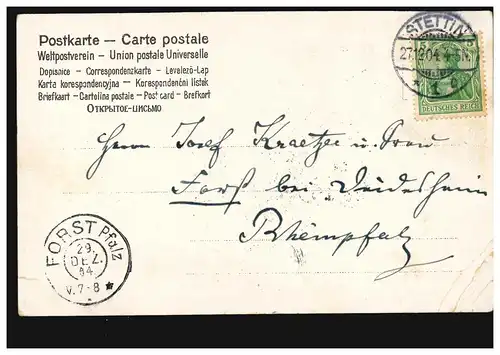 Postkarte — Carte postale
Weltpostverein - Union postale Universelle
Dopisnice - Correspondenzkarte - Levelező-Lap
Karta korespondencyjna - Korespondenční lístek
Briefkaart - Cartolina postale - Post card - Brefkort
Открытое-письмо
STETTIN
27.12.04. 4-5N.
DEUTSCHES REICH
Herrn Josef Kraetzer u. Frau
Forst bei Deidesheim
Rheinpfalz
FORST Pfalz
29.
DEZ.
04
V.7-8